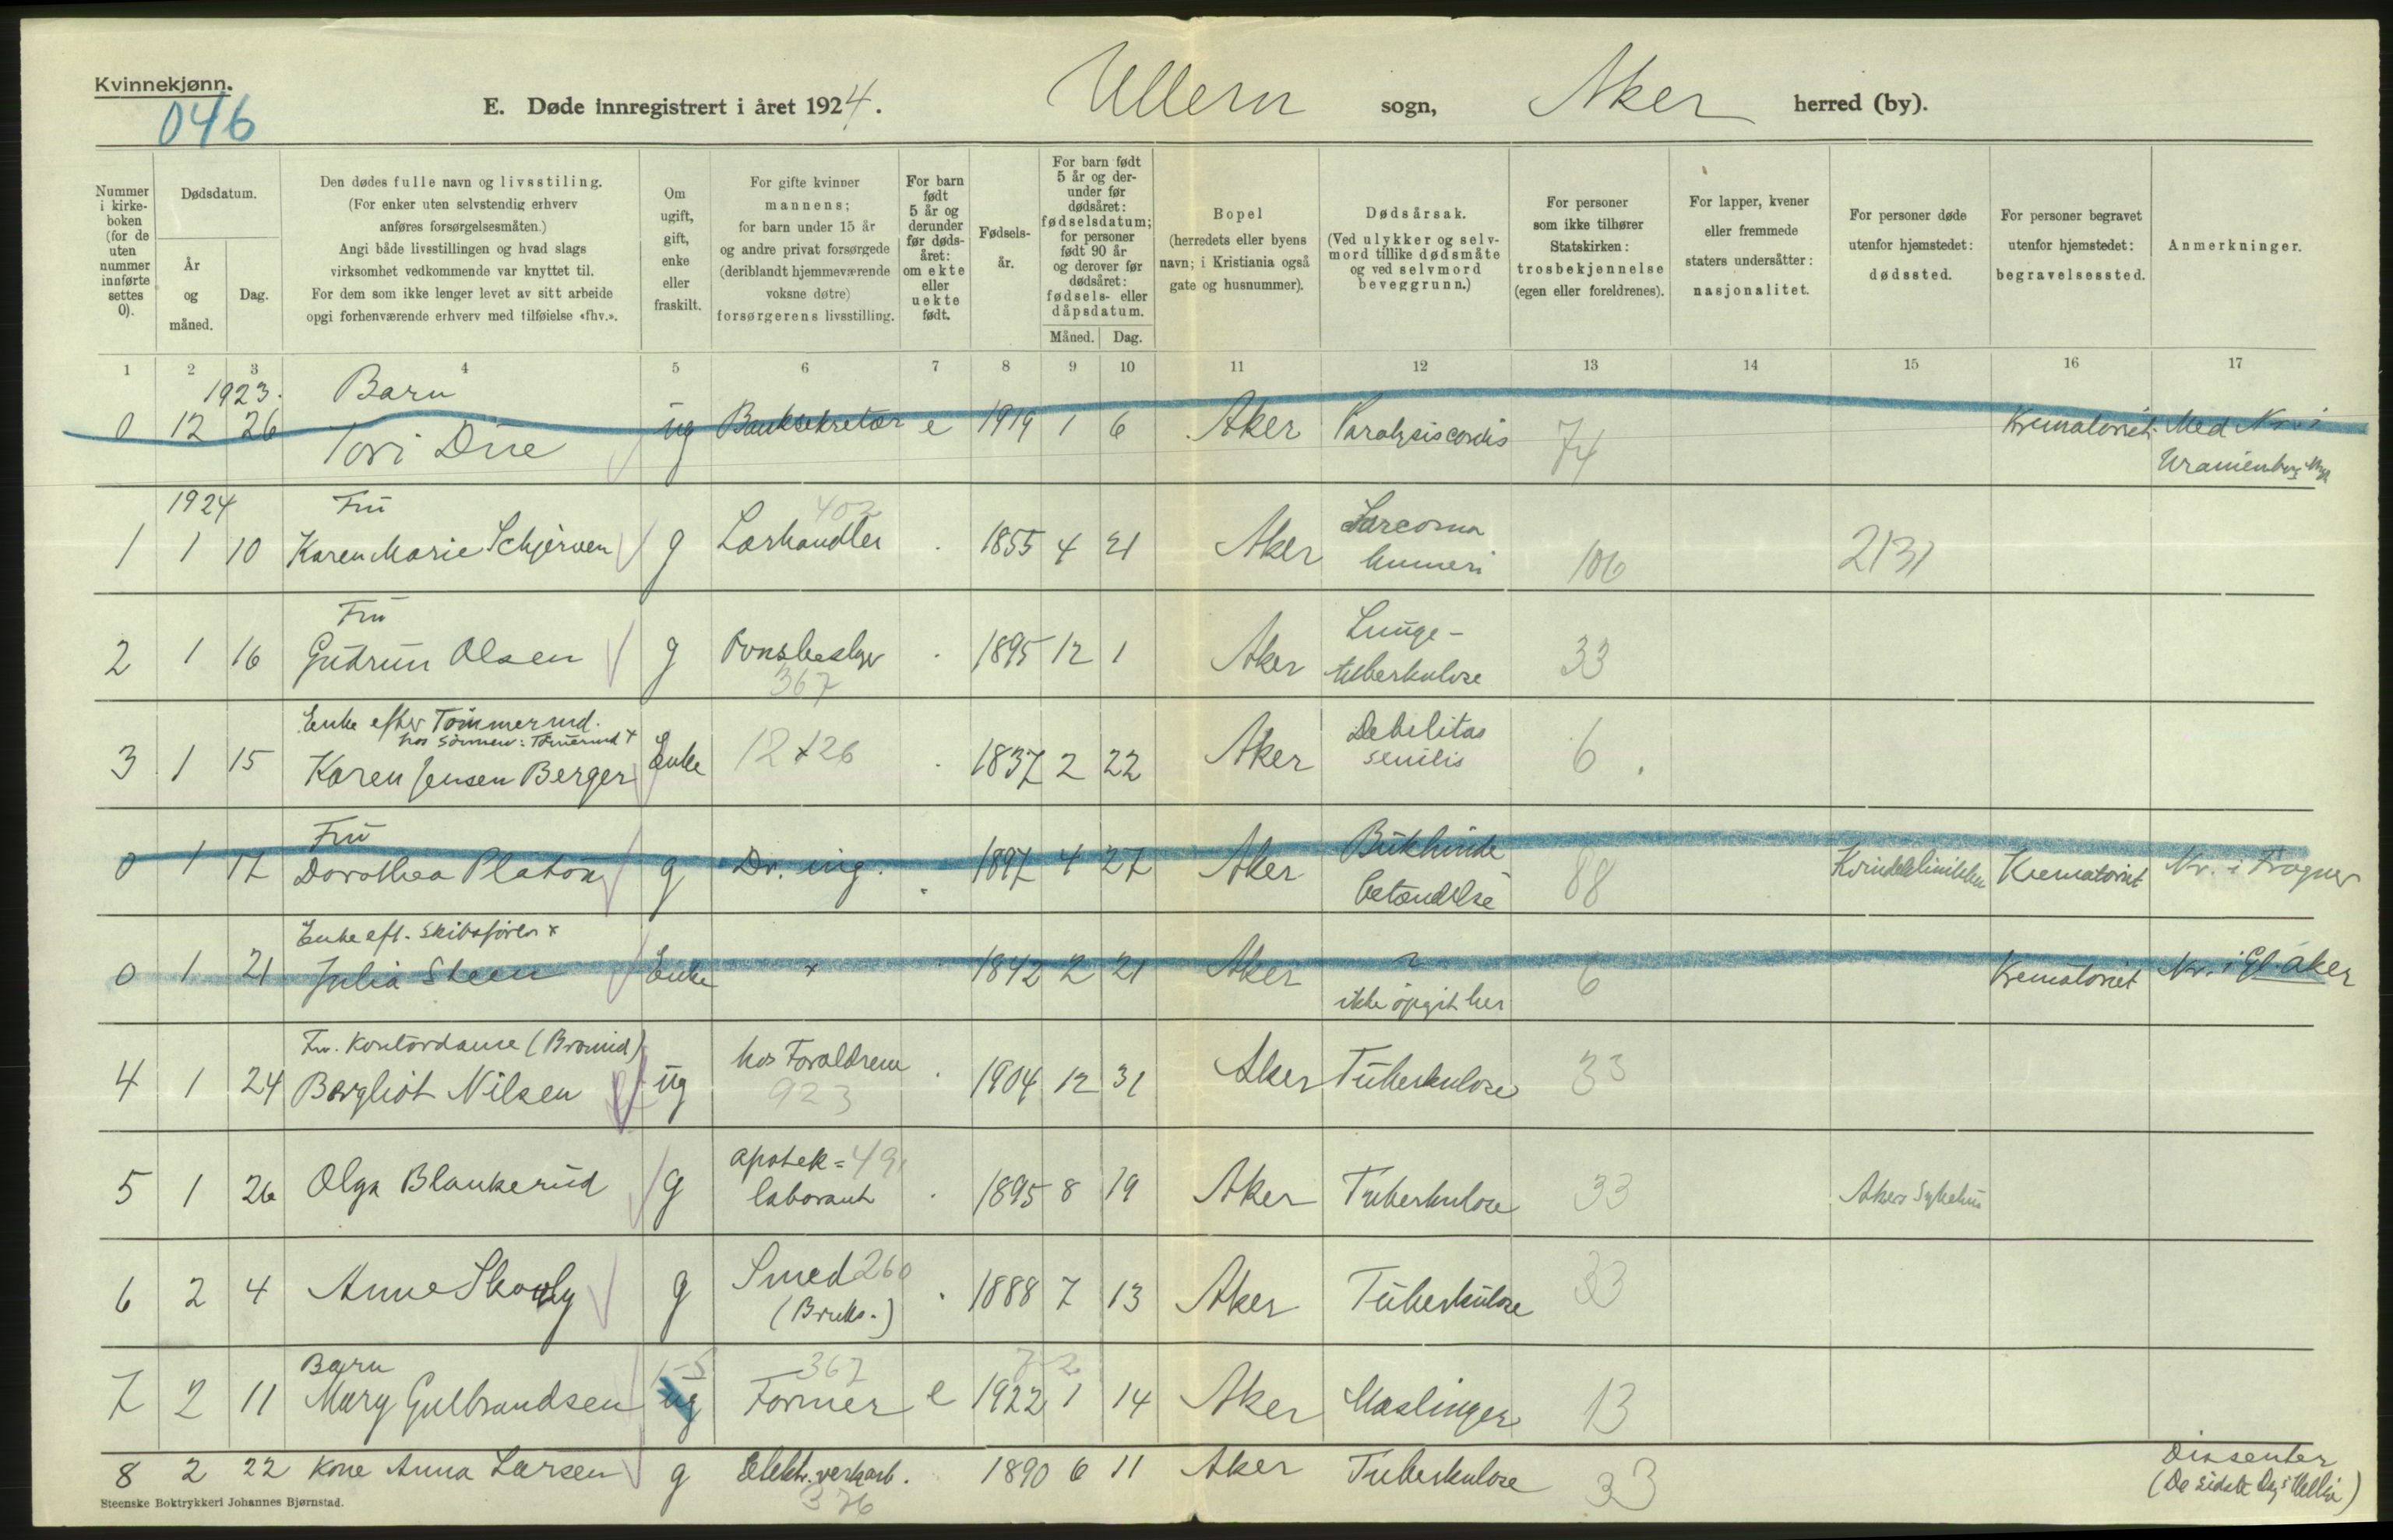 Kvinnekjønn.
046
E. Døde innregistrert i året 1924. Ullern sogn, Aker herred (by).
Nummer i kirke-boken (for de uten nummer innførte settes 0).
Dødsdatum.
År og måned.
Dag.
Den dødes fulle navn og livsstiling.
(For enker uten selvstendig erhverv
anføres forsørgelsesmåten.)
Angi både livsstillingen og hvad slags
virksomhet vedkommende var knyttet til.
For dem som ikke lenger levet av sitt arbeide
opgi forhenværende erhverv med tilføielse «fhv.».
Om ugift, gift, enke eller fraskilt.
For gifte kvinner
mannens;
for barn under 15 år
og andre privat forsørgede
(deriblandt hjemmeværende
voksne døtre)
forsørgerens livsstilling.
For barn født 5 år og derunder før døds-året: om ekte eller uekte født.
Fødsels-år.
For barn født 5 år og der-under før dødsåret: fødselsdatum; for personer født 90 år og derover før dødsåret: fødsels- eller dåpsdatum.
Måned. Dag.
Bopel
(herredets eller byens
navn; i Kristiania også
gate og husnummer).
Dødsårsak.
(Ved ulykker og selv-
mord tillike dødsmåte
og ved selvmord
beveggrunn.)
For personer
som ikke tilhører
Statskirken:
trosbekjennelse
(egen eller foreldrenes).
For lapper, kvener
eller fremmede
staters undersåtter:
nasjonalitet.
For personer døde
utenfor hjemstedet:
dødssted.
For personer begravet
utenfor hjemstedet:
begravelsessted.
Anmerkninger.
1 2 3 4 5 6 7 8 9 10 11 12 13 14 15 16 17
1923. Barn
0 12 26 Tori Due ug Banksekretær e 1919 1 6 Aker Paralysis cordis 74 Krematoriet Med Nr. i
Uranienborg
1924 Fru 402
1 1 10 Karen Marie Schjerven g Lærhandler 1855 4 21 Aker Sarcoma
humeri 106 2131
Fru
2 1 16 Gudrun Olsen g 1895 12 1 Aker Lunge-
tuberkulose 33
367
Enke efter Tømmermd.
hos sønnen: Tømermd +
3 1 15 Karen Jensen Berger Enke 12+26 1837 2 22 Aker Debilitas
senilis 6
Fru
0 1 17 Dorothea Platou g Dr. ing. 1897 4 27 Aker Bukhinde
betændelse 88 Kvindeklinikken Krematoriet Nr. i Frogner
Enke eft. Skibsfører x
0 1 21 Julia Steen Enke x 1842 2 21 Aker ?
ikke opgit her 6 Krematoriet Nr. i Gl. Aker
Fv. Kontordame (Bromid)
4 1 24 Borgliot Nilsen ug hos Forældrene 1904 12 31 Aker Tuberkulose 33
923
5 1 26 Olga Blankerud g apotek= 491
laborant 1895 8 19 Aker Tuberkulose 33 Akers Sykehus
6 2 4 Anne Skovly g Smed 260
(Bruks.) 1888 7 13 Aker Tuberkulose 33
Barn 1-5 367 7-2
7 2 11 Mary Gulbrandsen ug Former e 1922 1 14 Aker Mæslinger 13
8 2 22 Kone Anna Larsen g Elektr. verksarb. 1890 6 11 Aker Tuberkulose 33 Dissenter
376
(De sidste Dag's Hellige)
Steenske Boktrykkeri Johannes Bjørnstad.